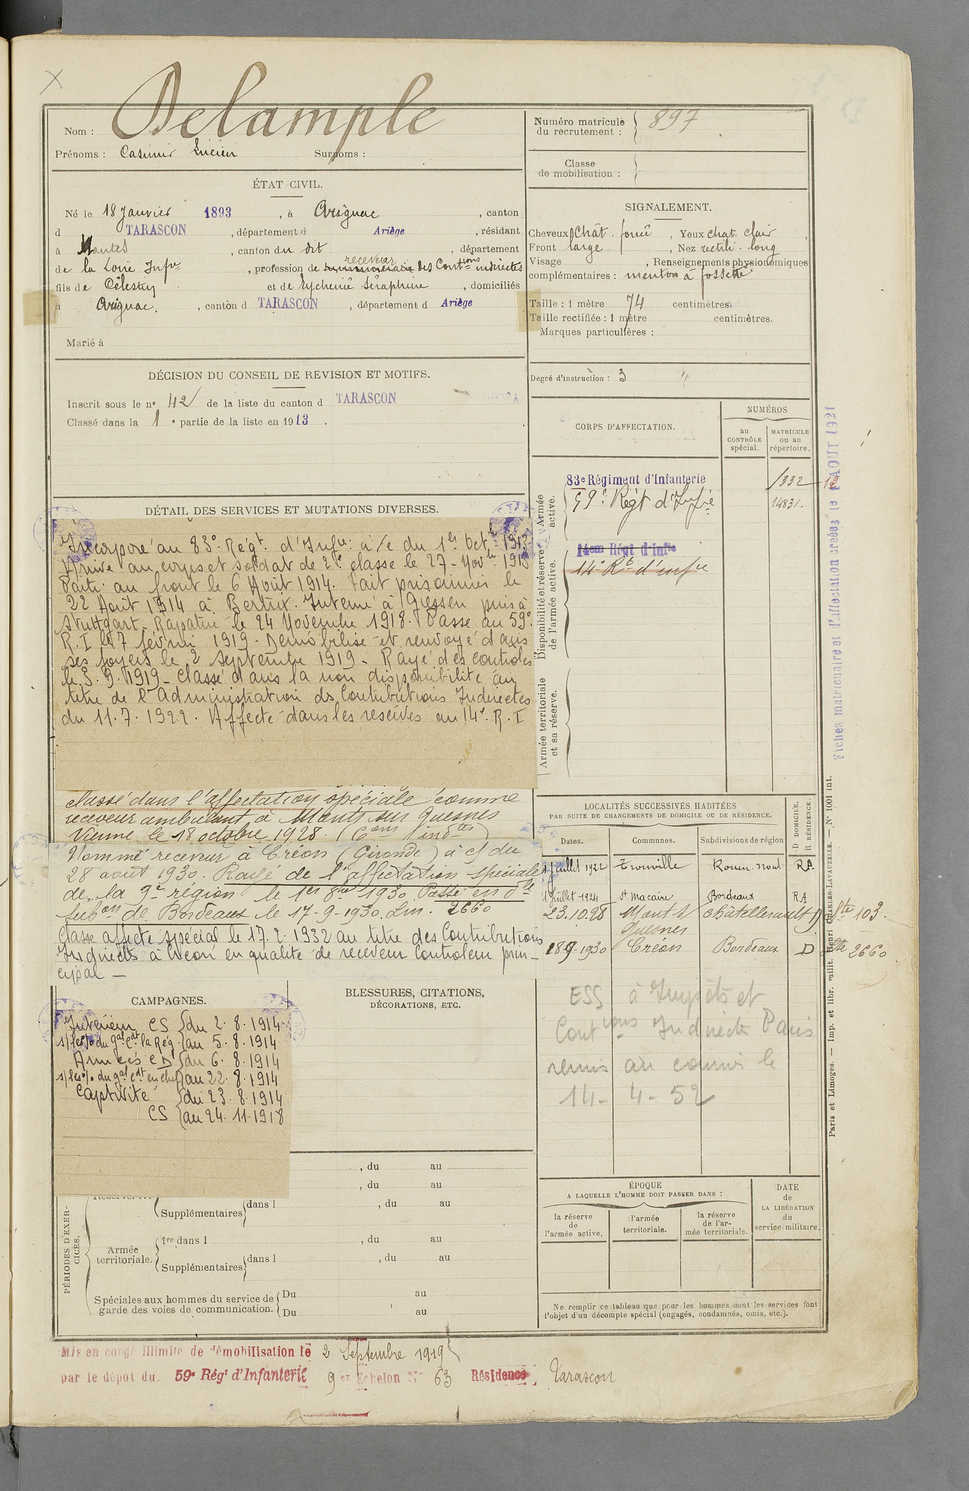 Nom : Delample
Prénoms : Casimir Lucien Surnoms :
Numéro matricule du recrutement : 897
Classe de mobilisation :
ÉTAT CIVIL.
Né le 18 Janvier 1893, à Arignac, canton
d TARASCON, département d Ariège, résidant
à Nantes, canton du dit, département
de la Loire Infre, profession de receveur des Contions indirectes
fils de Célestin et de Eychenié Séraphine, domiciliés
à Arignac, canton d TARASCON, département d Ariège
Marié à
SIGNALEMENT.
Cheveux chât. foncé, Yeux chat. clair
Front large, Nez rectil. long
Visage , Renseignements physionomiques
complémentaires : menton à fossette
Taille : 1 mètre 74 centimètres.
Taille rectifiée : 1 mètre centimètres.
Marques particulières :
Degré d'instruction : 3
DÉCISION DU CONSEIL DE REVISION ET MOTIFS.
Inscrit sous le no 42 de la liste du canton d TARASCON
Classé dans la 1e partie de la liste en 1913.
CORPS D'AFFECTATION.
NUMÉROS
au CONTRÔLE spécial.
MATRICULE ou au répertoire.
Armée active.
83e Régiment d'Infanterie
59e Régt d'Infie
14831
Disponibilité et réserve de l'armée active.
14eme Régt d'Infie
14e Rt d'infie
Armée territoriale et sa réserve.
DÉTAIL DES SERVICES ET MUTATIONS DIVERSES.
Incorporé au 83e Regt d'Infie à/c du 1er Octe 1913
Arrivé au corps et soldat de 2e classe le 27 Novbre 1913
Parti au front le 6 Août 1914. Fait prisonnier le
22 Août 1914 à Bertrix. Interné à Giessen puis à
Stuttgart. Rapatrié le 24 Novembre 1918. Passé au 59e
R.I. le 7 février 1919 - Démobilisé et renvoyé dans
ses foyers le 2 Septembre 1919 - Rayé des contrôles
le 3.9.1919 - Classé dans la non disponibilité au
titre de l'Administration des Contributions Indirectes
du 11.7.1922. Affecté dans les réserves au 14e R.I
Classé dans l'affectation spéciale comme
receveur ambulant à Monts sur Guesnes
Vienne le 18 octobre 1928. (Cons indtes)
Nommé receveur à Créon (Gironde) à cf du
28 août 1930. Rayé de l'affectation spéciale
de la 9e région le 1er 8bre 1930. Passé en dle
subon de Bordeaux le 17-9-1930. Lm. 2660
Classé affecté spécial le 17.2.1932 au titre des Contributions
Indirectes à Créon en qualité de receveur Contrôleur prin-
cipal —
LOCALITÉS SUCCESSIVES HABITÉES
PAR SUITE DE CHANGEMENTS DE DOMICILE OU DE RÉSIDENCE.
Dates. Communes. Subdivisions de région D DOMICILE. R RÉSIDENCE.
1 Juillet 1922 Trouville Rouen nord RA
1 Juillet 1924 St Macaire Bordeaux RA
23.10.28 Mont s/ Guesnes Châtellerault D
18 9 1930 Créon Bordeaux D 2660
ESS à Impôts et
Contions Indirecte Paris
remis au courrier le
14-4-52
CAMPAGNES.
Intérieur CS du 2.8.1914
au 5.8.1914
Armées CD du 6.8.1914
au 22.8.1914
Captivité du 23.8.1914
CS au 24.11.1918
BLESSURES, CITATIONS,
DÉCORATIONS, ETC.
PÉRIODES D'EXERCICES.
, du au
, du au
Supplémentaires dans l , du au
Armée territoriale.
1re dans l , du au
Supplémentaires dans l , du au
Spéciales aux hommes du service de garde des voies de communication.
Du au
Du au
ÉPOQUE
A LAQUELLE L'HOMME DOIT PASSER DANS :
la réserve de l'armée active.
l'armée territoriale.
la réserve de l'armée territoriale.
DATE de LA LIBÉRATION du service militaire.
Ne remplir ce tableau que pour les hommes dont les services font
l'objet d'un décompte spécial (engagés, condamnés, omis, etc.).
Mis en congé illimité de démobilisation le 2 Septembre 1919
par le dépôt du 59e Régt d'Infanterie 9e Echelon No 63 Résidence Tarascon
Fiches matriculaire et d'affectation créées le AOUT 1921
Paris et Limoges. — Imp. et libr. milit. Henri CHARLES-LAVAUZELLE. — No 1001 int.